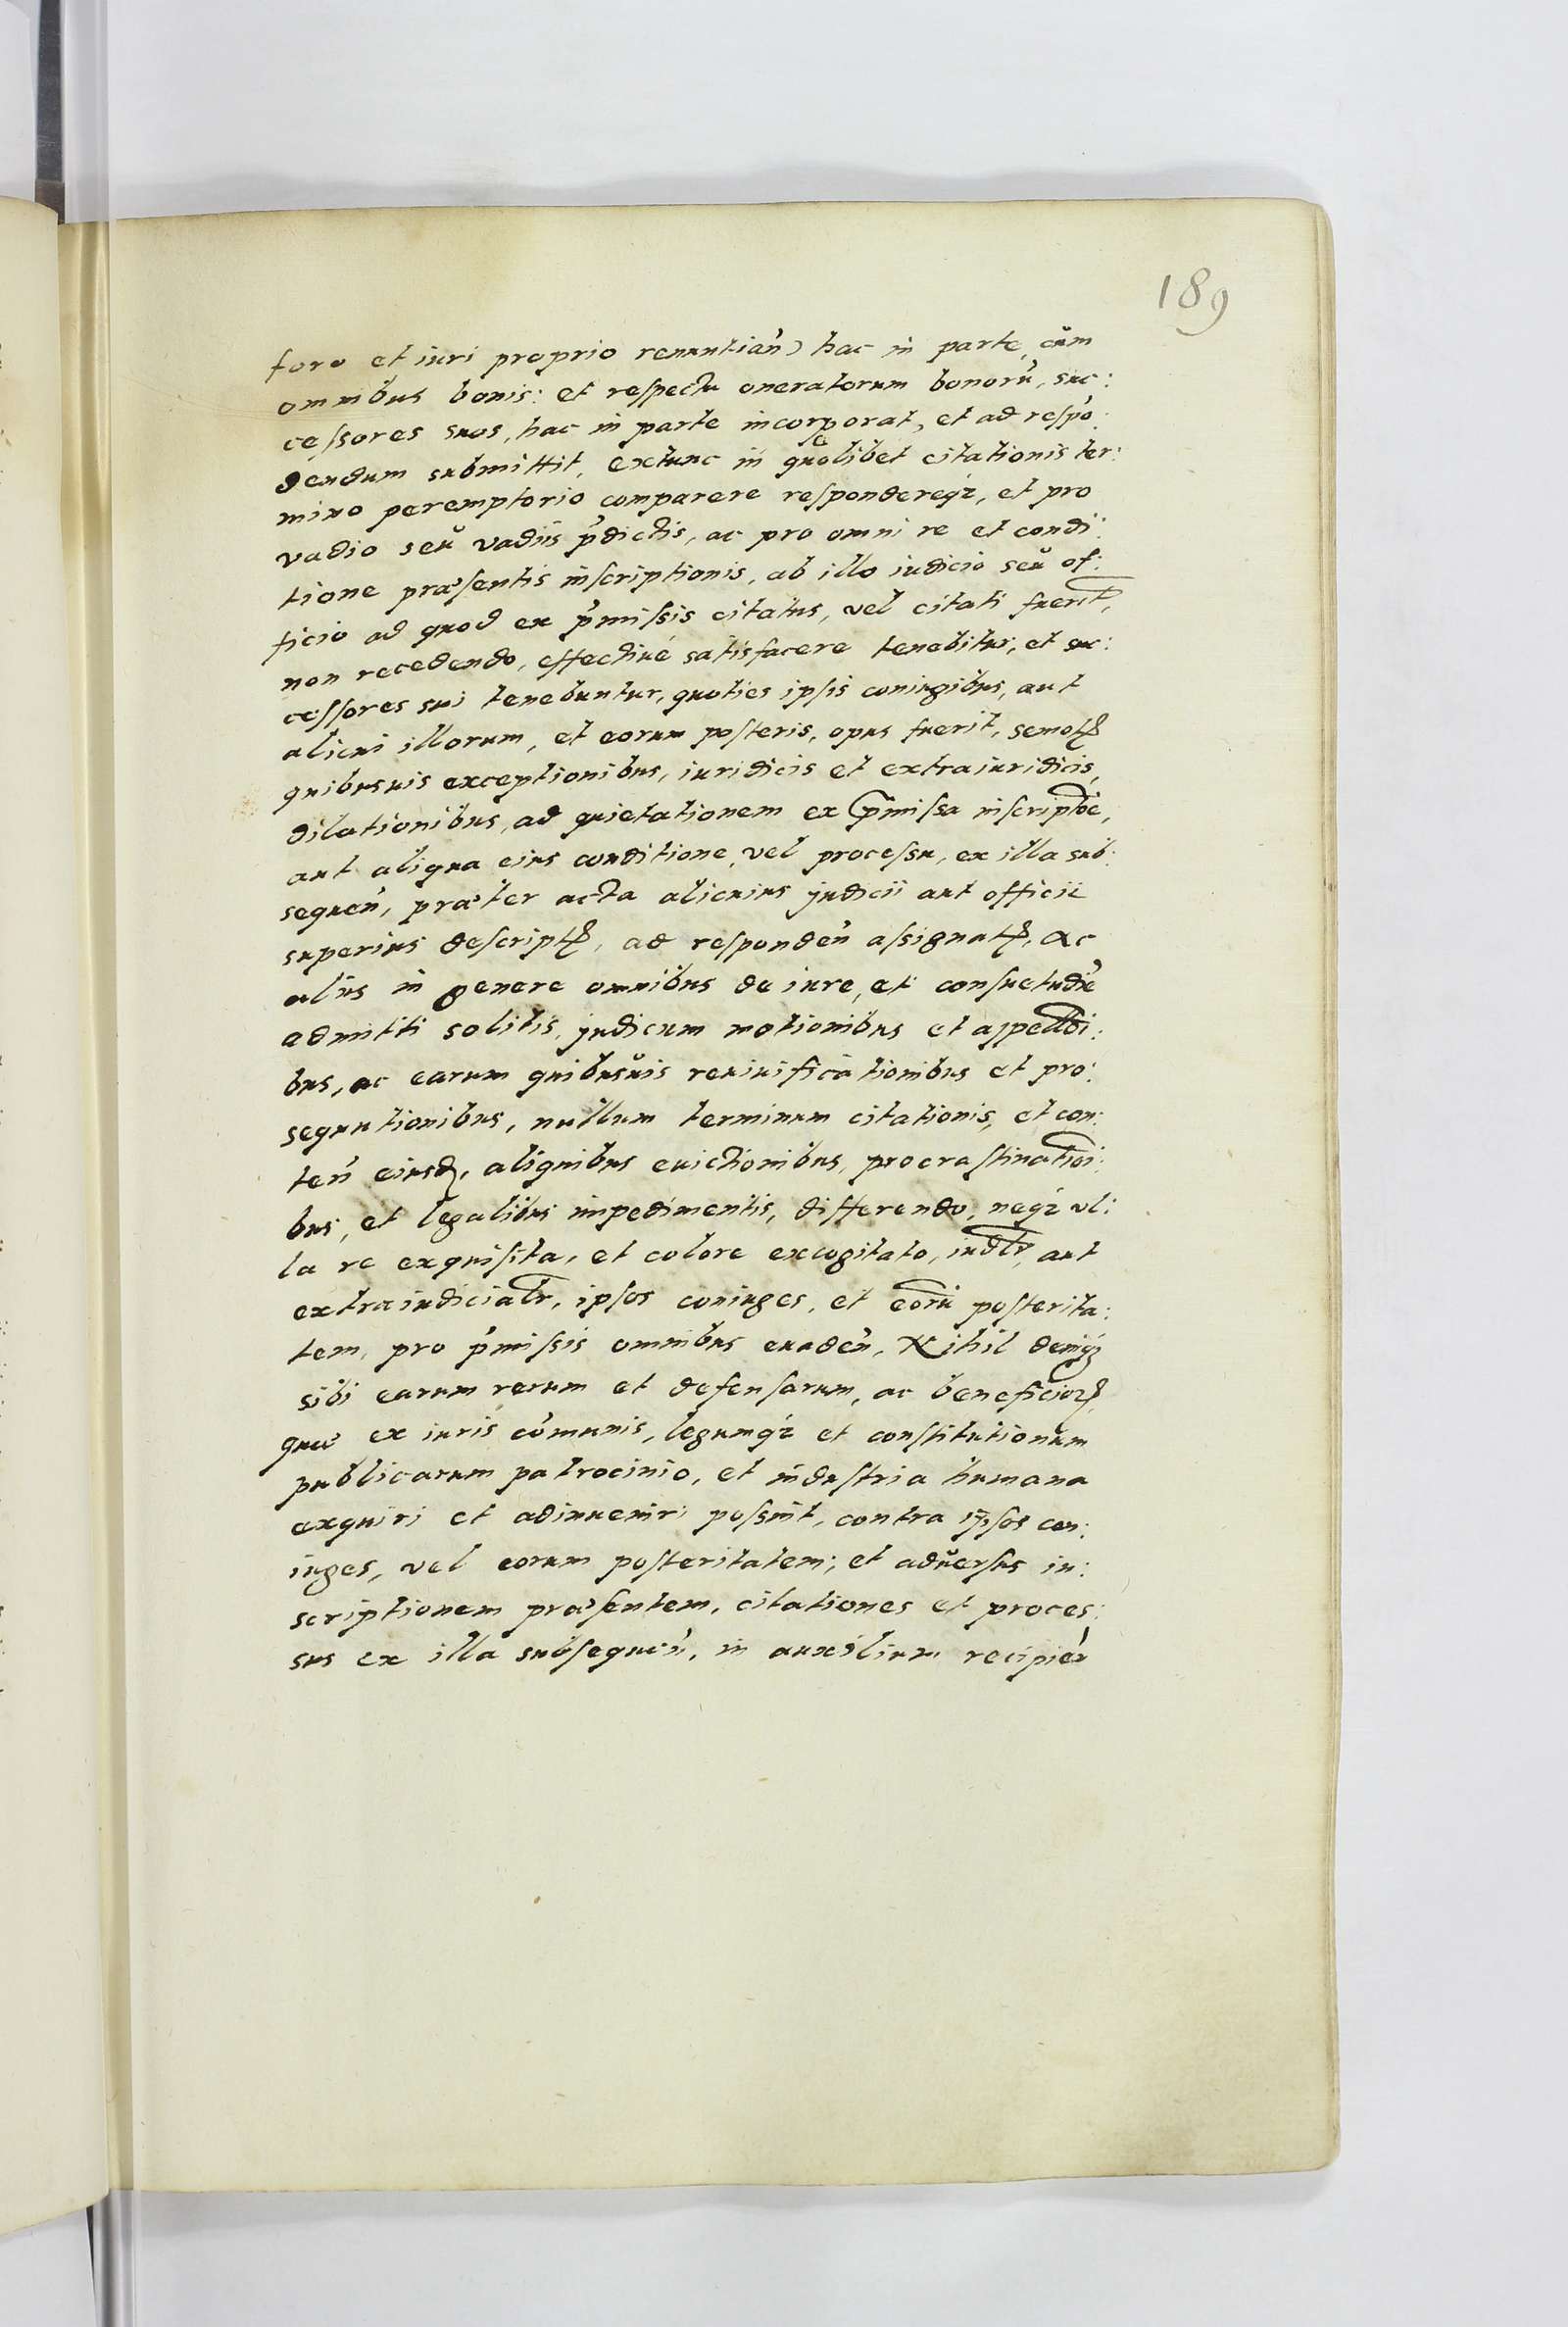 189
foro et iuri proprio renuntiań) hac in parte, cům
omnibus bonis: et respectu oneratorum bonorů, suc:
cessores suos, hac in parte incorporat, et ad respő:
dendum submittit, extunc in quolibet citationis ter:
mino peremptorio comparere respondereqz, et pro
vadio seů vadiis p̃dictis, ac pro omni re et condi:
tione præsentis inscriptionis, ab illo iudicio seů of:
ficio ad quod ex p̃missis citatus, vel citati fuerit̃,
non recedendo, effectiué satisfacere tenebitur, et suc:
cessores sui tenebuntur, quoties ipsis coniugibus, aut
alicui illorum, et eorum posteris, opus fuerit, semotꝝ
quibusuis exceptionibus, iuridicis et extraiuridicis,
dilationibus, ad quietationem ex p̃missa inscriptõe,
aut aliqua eius conditione, vel processu, ex illa sub:
sequeń, præter acta alicuius judicii aut officii
superius descriptꝝ, ad respondeń assignatꝝ, ac
aliis in genere omnibus de iure, et consuetudiẽ
admitti solitis, judicum motionibus et appellõi:
bus, ac earum quibusůis reuiuificationibus et pro:
sequutionibus, nullum terminum citationis, et con:
teń eiusđ, aliquibus euictionibus, procrastinatiõi:
bus, et legalibus impedimentis, differendo, neqz vl:
la re exquisita, et colore excogitato, iudlr̃, aut
extraiudicialr̃, ipsos coniuges, et eor̃u posterita:
tem, pro p̃missis omnibus euadeń, Nihil deniqz
sibi earum rerum et defensarum, ac beneficioꝝ,
quæ ex iuris cõmunis, legumqz et constitutionům
publicarum patrocinio, et industria humana
exquiri et adinueniri possint, contra ipsos con:
iuges, vel eorum posteritatem; et adůersus in:
scriptionem præsentem, citationes et proces:
sus ex illa subsequeń, in auxilium recipień